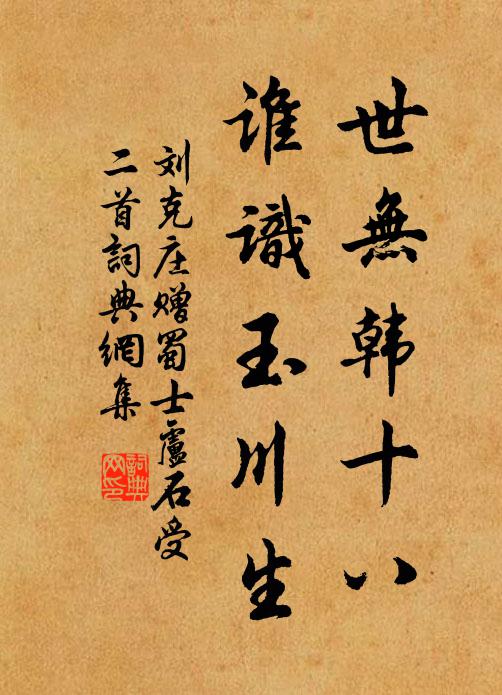 世無韩十八
谁識玉川生
刘克庄赠蜀士盧石受
二首詞典網集
詞典
网印